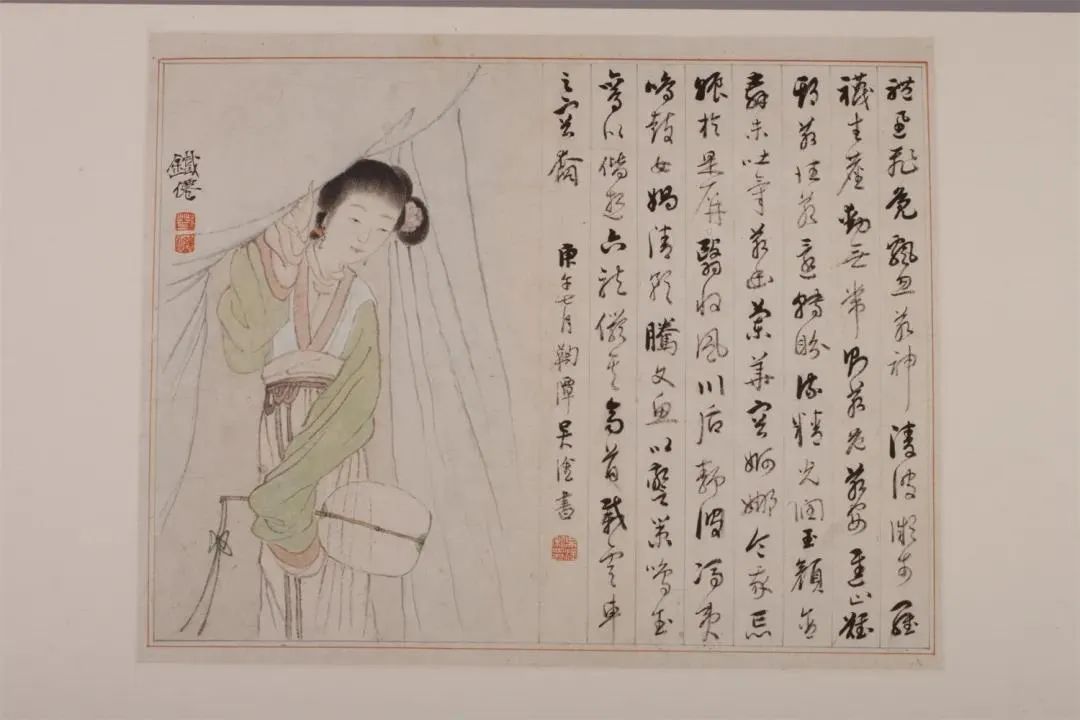 體迅飛鳧飄忽若神淩波微步羅
襪生塵動無常則若危若安進止難
期若往若還轉盼流精光潤玉顏含
辭未吐氣若幽蘭華容婀娜令我忘
餐於是屏翳收風川后靜波馮夷
鳴鼓女媧清歌騰文魚以警乘鳴玉
鸞以偕逝六龍儼其齊首載雲車
之容裔 庚午七月鞠潭吳淦書
鐵僊